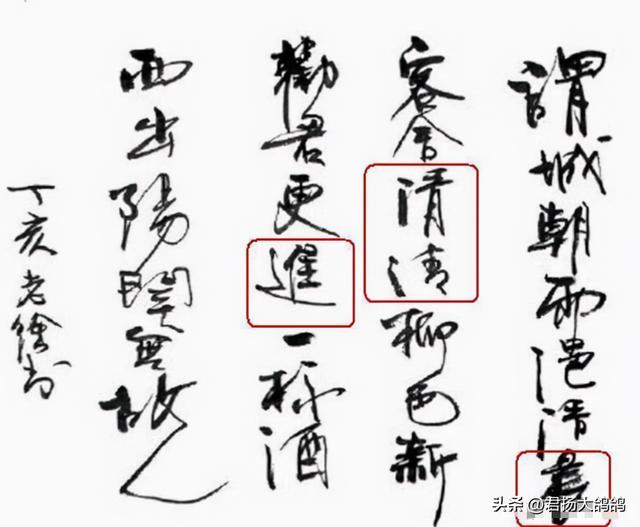 謂城朝雨浥清
客舍清清柳色新
勸君更進一杯酒
西出陽關無故人
丁亥老徐书
头条 @君扬大鸽鸽